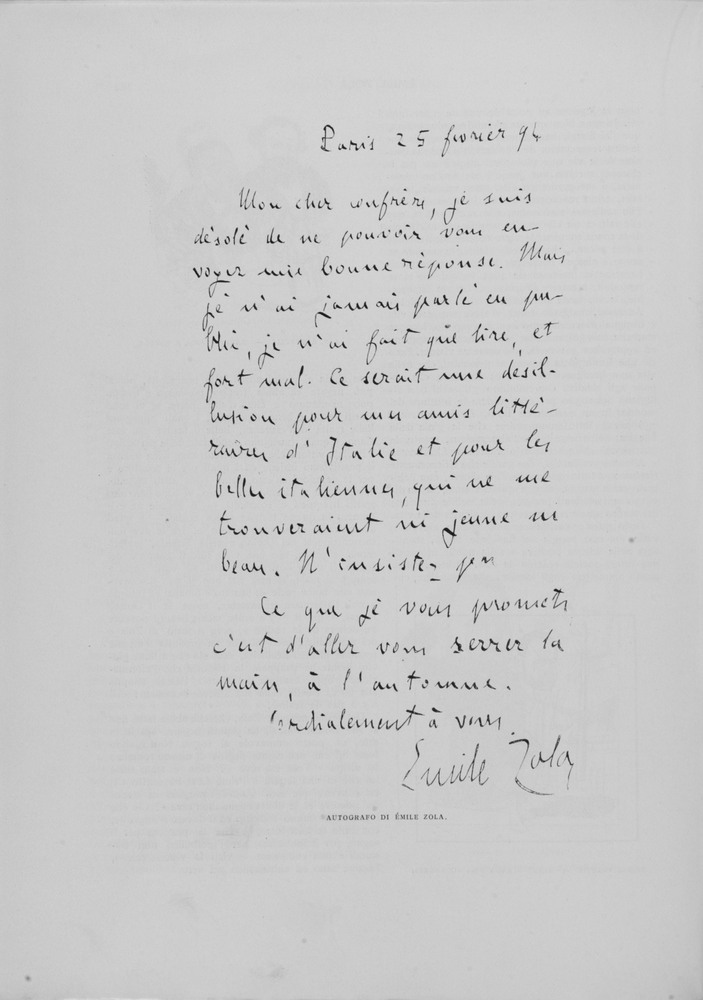 Paris 25 fevrier 94
Mon cher confrère, je suis
désolé de ne pouvoir vous en-
voyer une bonne réponse. Mais
je n'ai jamais parlé en pu-
blic, je n'ai fait que lire, et
fort mal. Ce serait une désil-
lusion pour mes amis litté-
raires d'Italie et pour les
belles italiennes, qui ne me
trouveraient ni jeune ni
beau. N'insistez pas
Ce que je vous promets
c'est d'aller vous serrer la
main, à l'automne.
Cordialement à vous.
Emile Zola
AUTOGRAFO DI ÉMILE ZOLA.